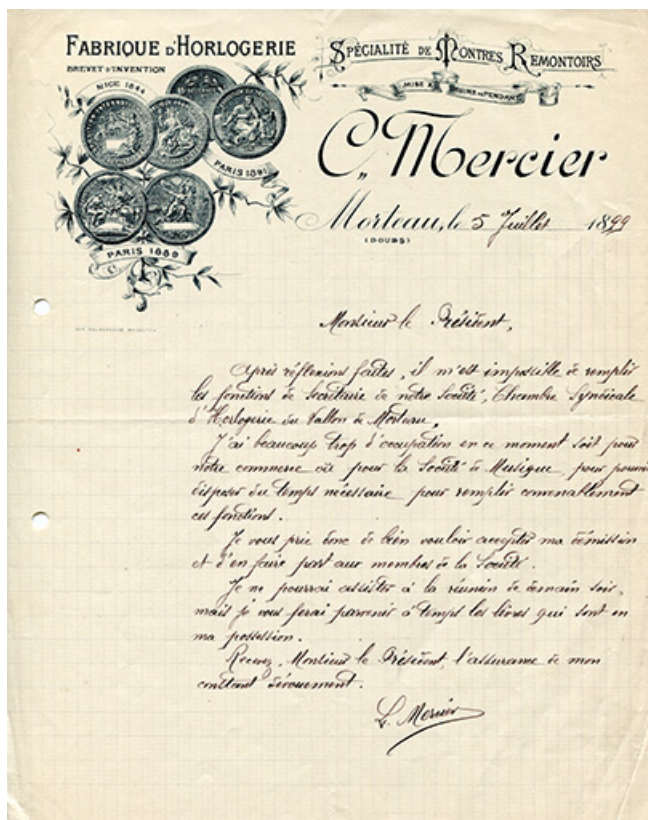 FABRIQUE D'HORLOGERIE
BREVET D'INVENTION
SPÉCIALITÉ DE MONTRES REMONTOIRS
MISE À L'HEURE AU PENDANT
NICE 1844
PARIS 1891
PARIS 1889
C. Mercier
Morteau, le 5 Juillet 1899
(DOUBS)
Monsieur le Président,
Après réflexions faites, il m'est impossible de remplir
les fonctions de Secrétaire de notre Société, Chambre Syndicale
d'Horlogerie du Vallon de Morteau,
J'ai beaucoup trop d'occupation en ce moment soit pour
notre commerce où pour la Société de Musique, pour pouvoir
disposer du temps nécessaire pour remplir convenablement
ces fonctions.
Je vous prie donc de bien vouloir accepter ma démission
et d'en faire part aux membres de la Société.
Je ne pourrai assister à la réunion de demain soir,
mais je vous ferai parvenir à temps les livres qui sont en
ma possession.
Recevez, Monsieur le Président, l'assurance de mon
constant dévouement.
Mercier